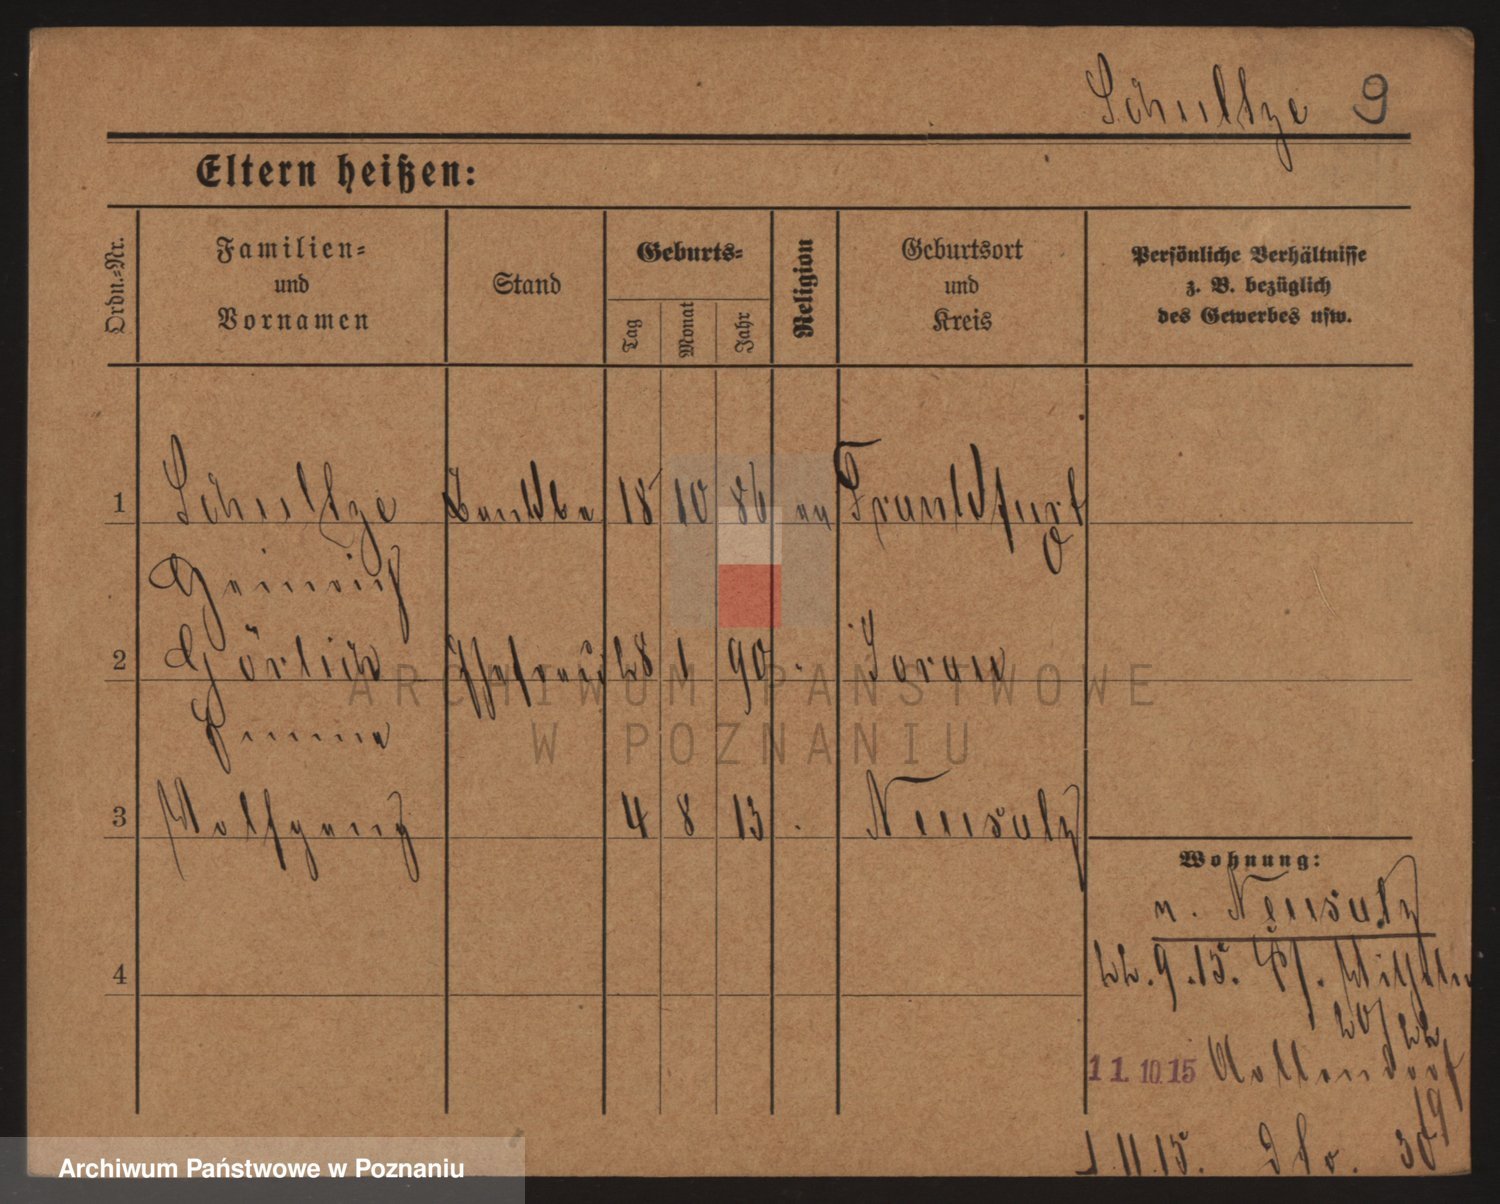 Schultze 9
Eltern heißen:
Ordn.-Nr.
Familien-
und
Vornamen
Stand
Geburts-
Tag
Monat
Jahr
Religion
Geburtsort
und
Kreis
Persönliche Verhältnisse
z. B. bezüglich
des Gewerbes usw.
1 Schultze 18 10 86 ev Frankfurt
Heinrich O
2 Görlich Ehefrau 28 1 90 Sorau
Emma
3 Wolfgang 4 8 13 Neusalz
Wohnung:
v. Neusalz
22.9.15.
20/22
11.10.15
19
1.11.15. 30
4
ARCHIWUM PAŃSTWOWE
W POZNANIU
Archiwum Państwowe w Poznaniu